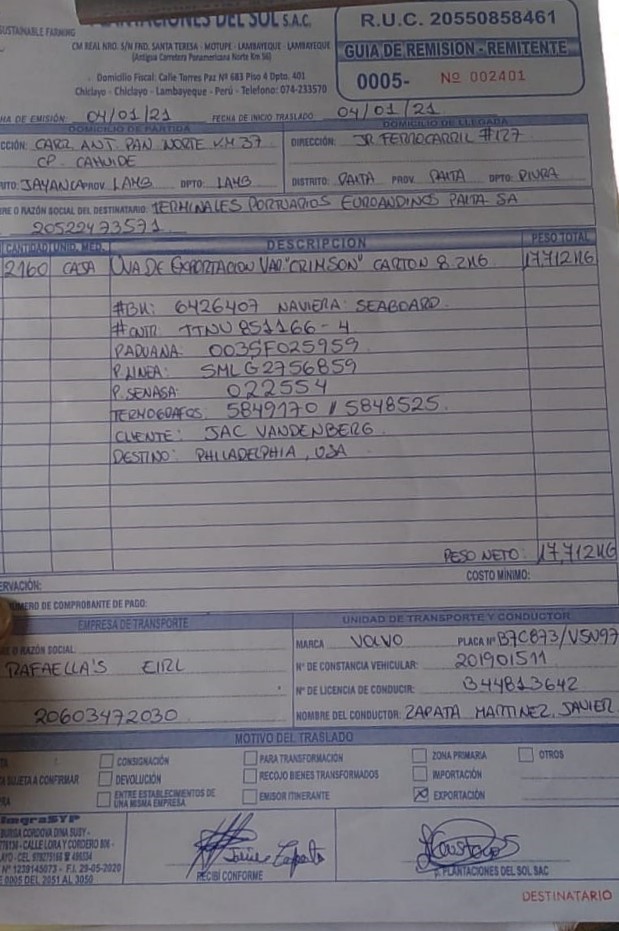 PLANTACIONES DEL SOL S.A.C.
SUSTAINABLE FARMING
CM REAL NRO. S/N FND. SANTA TERESA - MOTUPE - LAMBAYEQUE - LAMBAYEQUE
(Antigua Carretera Panamericana Norte Km 56)
Domicilio Fiscal: Calle Torres Paz Nº 683 Piso 4 Dpto. 401
Chiclayo - Chiclayo - Lambayeque - Perú - Telefono: 074-233570
R.U.C. 20550858461
GUIA DE REMISION - REMITENTE
0005- Nº 002401
HA DE EMISIÓN: 04/01/21 FECHA DE INICIO TRASLADO 04/01/21
DOMICILIO DE PARTIDA
CCIÓN: CARR. ANT. PAN NORTE KM 37
CP. CAHUIDE
ITO: JAYANCA PROV. LAMB DPTO: LAMB
DOMICILIO DE LLEGADA
DIRECCIÓN: JR FERROCARRIL #127
DISTRITO: PAITA PROV. PAITA DPTO: PIURA
RE O RAZÓN SOCIAL DEL DESTINATARIO: TERMINALES PORTUARIOS EUROANDINOS PAITA SA
20522473571
CANTIDAD UNID. MED. DESCRIPCION PESO TOTAL
2160 CAJA UVA DE EXPORTACION VAR "CRIMSON" CARTON 8.2KG 17,712KG
#BK: 6426407 NAVIERA: SEABOARD
#CNTR: TTNU 851166-4
P.ADUANA: 003SF025959
P.LINEA: SMLG2756859
P.SENASA: 022554
TERMOGRAFOS: 5849170 / 5848525
CLIENTE: JAC VANDENBERG
DESTINO: PHILADELPHIA, USA
PESO NETO: 17,712KG
ERVACIÓN: COSTO MÍNIMO:
NÚMERO DE COMPROBANTE DE PAGO:
EMPRESA DE TRANSPORTE
RE O RAZÓN SOCIAL
RAFAELLA'S EIRL
20603472030
UNIDAD DE TRANSPORTE Y CONDUCTOR
MARCA VOLVO PLACA Nº B7C873/V5N97
N° DE CONSTANCIA VEHICULAR: 201901511
N° DE LICENCIA DE CONDUCIR: B44813642
NOMBRE DEL CONDUCTOR: ZAPATA MARTINEZ, JAVIER
MOTIVO DEL TRASLADO
TA CONSIGNACIÓN PARA TRANSFORMACIÓN ZONA PRIMARIA OTROS
A SUJETA A CONFIRMAR DEVOLUCIÓN RECOJO BIENES TRANSFORMADOS IMPORTACIÓN
PRA ENTRE ESTABLECIMIENTOS DE UNA MISMA EMPRESA EMISOR ITINERANTE EXPORTACIÓN
ImgraSYP
BURGA CORDOVA DINA SUSY -
- CALLE LORA Y CORDERO 806 -
AYO - CEL 979279168
Nº 1239145073 - F.I. 29-05-2020
E 0005 DEL 2051 AL 3050
RECIBÍ CONFORME
P. PLANTACIONES DEL SOL SAC
DESTINATARIO